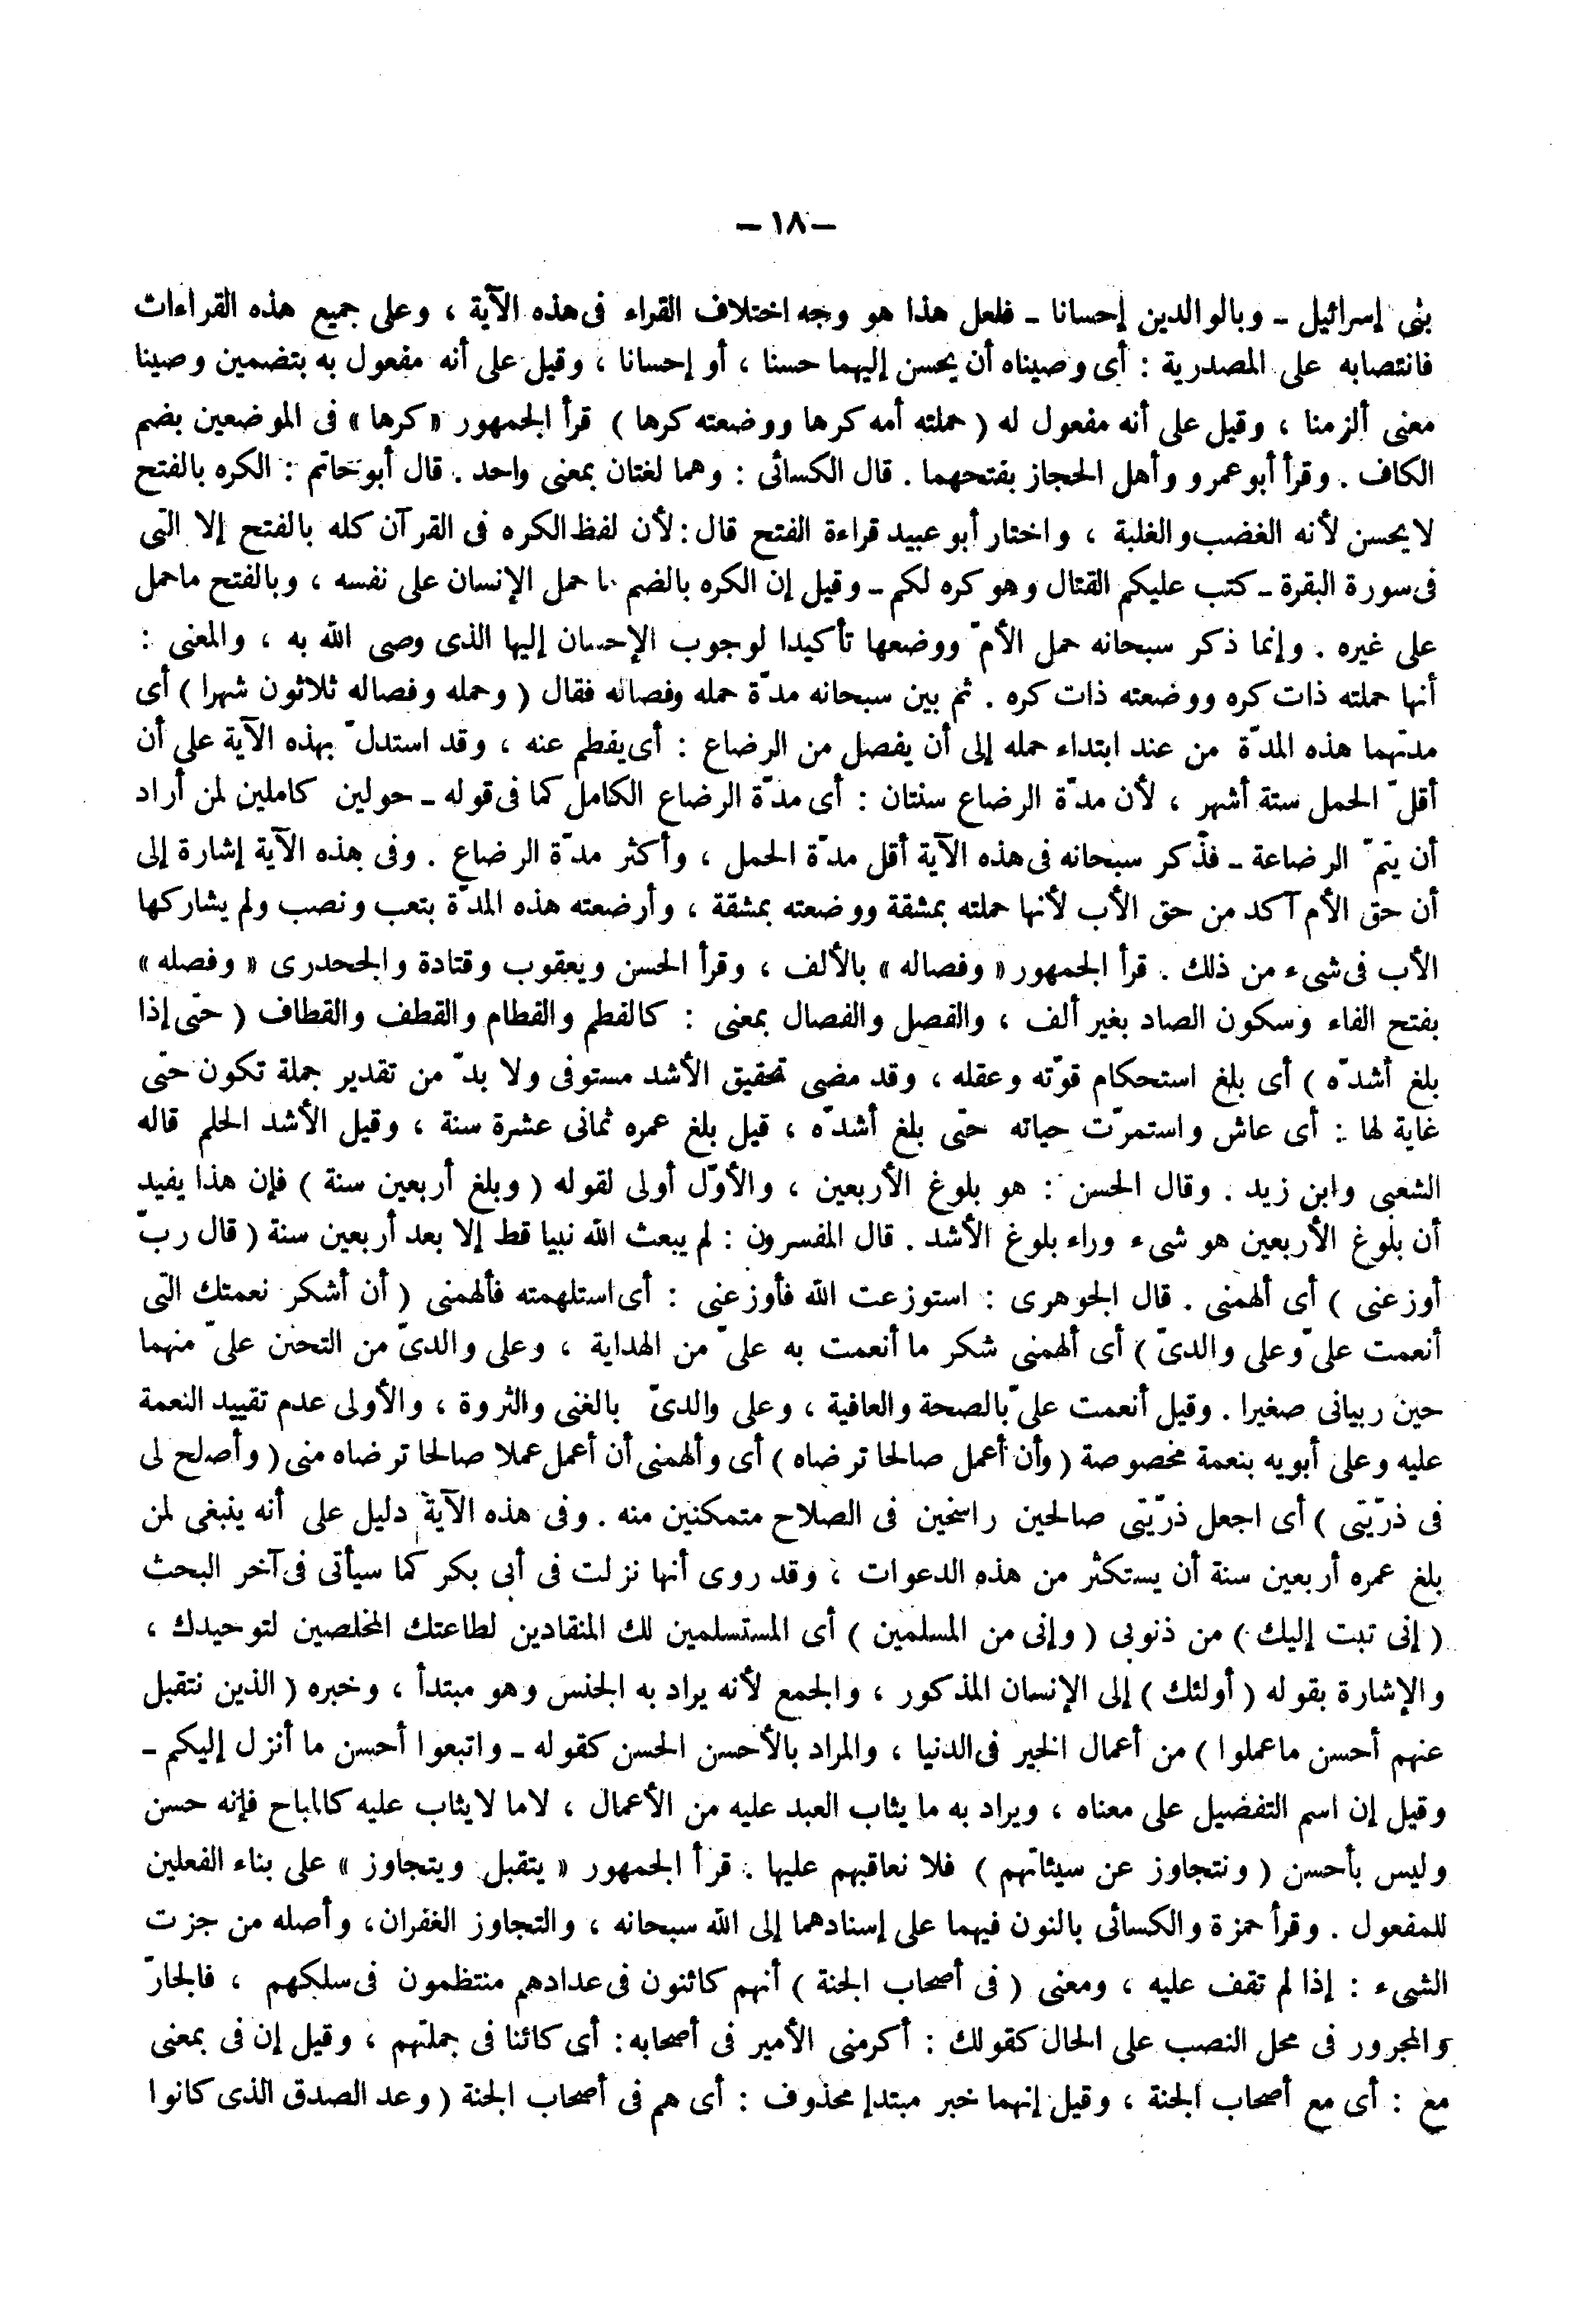 – ١٨ –
بنى إسرائيل ـ وبالوالدين إحسانا ـ فلعل هذا هو وجه اختلاف القراء فى هذه الآية ، وعلى جميع هذه القراءات
فانتصابه على المصدرية : أى وصيناه أن يحسن إليهما حسنا ، أو إحسانا ، وقيل على أنه مفعول به بتضمين وصينا
معنى ألزمنا ، وقيل على أنه مفعول له ( حملته أمه كرها ووضعته كرها ) قرأ الجمهور « كرها » فى الموضعين بضم
الكاف . وقرأ أبو عمرو وأهل الحجاز بفتحهما . قال الكسائى : وهما لغتان بمعنى واحد . قال أبو حاتم : الكره بالفتح
لا يحسن لأنه الغضب والغلبة ، واختار أبو عبيد قراءة الفتح قال : لأن لفظ الكره فى القرآن كله بالفتح إلا التى
فى سورة البقرة ـ كتب عليكم القتال وهو كره لكم ـ وقيل إن الكره بالضم ما حمل الإنسان على نفسه ، وبالفتح ماحمل
على غيره . وإنما ذكر سبحانه حمل الأمّ ووضعها تأكيدا لوجوب الإحسان إليها الذى وصى الله به ، والمعنى :
أنها حملته ذات كره ووضعته ذات كره . ثم بين سبحانه مدّة حمله وفصاله فقال ( وحمله وفصاله ثلاثون شهرا ) أى
مدتهما هذه المدّة من عند ابتداء حمله إلى أن يفصل من الرضاع : أى يفطم عنه ، وقد استدلّ بهذه الآية على أن
أقلّ الحمل ستة أشهر ، لأن مدّة الرضاع سنتان : أى مدّة الرضاع الكامل كما فى قوله ـ حولين كاملين لمن أراد
أن يتمّ الرضاعة ـ فذكر سبحانه فى هذه الآية أقل مدّة الحمل ، وأكثر مدّة الرضاع . وفى هذه الآية إشارة إلى
أن حق الأم آكد من حق الأب لأنها حملته بمشقة ووضعته بمشقة ، وأرضعته هذه المدّة بتعب ونصب ولم يشاركها
الأب فى شىء من ذلك . قرأ الجمهور « وفصاله » بالألف ، وقرأ الحسن ويعقوب وقتادة والجحدرى « وفصله »
بفتح الفاء وسكون الصاد بغير ألف ، والفصل والفصال بمعنى : كالفطم والفطام والقطف والقطاف ( حتى إذا
بلغ أشدّه ) أى بلغ استحكام قوّته وعقله ، وقد مضى تحقيق الأشد مستوفى ولا بدّ من تقدير جملة تكون حتى
غاية لها : أى عاش واستمرّت حياته حتى بلغ أشدّه ، قيل بلغ عمره ثمانى عشرة سنة ، وقيل الأشد الحلم قاله
الشعبى وابن زيد . وقال الحسن : هو بلوغ الأربعين ، والأوّل أولى لقوله ( وبلغ أربعين سنة ) فإن هذا يفيد
أن بلوغ الأربعين هو شىء وراء بلوغ الأشد . قال المفسرون : لم يبعث الله نبيا قط إلا بعد أربعين سنة ( قال ربّ
أوزعنى ) أى ألهمنى . قال الجوهرى : استوزعت الله فأوزعنى : أى استلهمته فألهمنى ( أن أشكر نعمتك التى
أنعمت علىّ وعلى والدىّ ) أى ألهمنى شكر ما أنعمت به علىّ من الهداية ، وعلى والدىّ من التحنن علىّ منهما
حين ربيانى صغيرا . وقيل أنعمت علىّ بالصحة والعافية ، وعلى والدىّ بالغنى والثروة ، والأولى عدم تقييد النعمة
عليه وعلى أبويه بنعمة مخصوصة ( وأن أعمل صالحا ترضاه ) أى وألهمنى أن أعمل عملا صالحا ترضاه منى ( وأصلح لى
فى ذرّيتى ) أى اجعل ذرّيتى صالحين راسخين فى الصلاح متمكنين منه . وفى هذه الآية دليل على أنه ينبغى لمن
بلغ عمره أربعين سنة أن يستكثر من هذه الدعوات ، وقد روى أنها نزلت فى أبى بكر كما سيأتى فى آخر البحث
( إنى تبت إليك ) من ذنوبى ( وإنى من المسلمين ) أى المستسلمين لك المنقادين لطاعتك المخلصين لتوحيدك ،
والإشارة بقوله ( أولئك ) إلى الإنسان المذكور ، والجمع لأنه يراد به الجنس وهو مبتدأ ، وخبره ( الذين نتقبل
عنهم أحسن ماعملوا ) من أعمال الخير فى الدنيا ، والمراد بالأحسن الحسن كقوله ـ واتبعوا أحسن ما أنزل إليكم ـ
وقيل إن اسم التفضيل على معناه ، ويراد به ما يثاب العبد عليه من الأعمال ، لاما لايثاب عليه كالمباح فإنه حسن
وليس بأحسن ( ونتجاوز عن سيئاتهم ) فلا نعاقبهم عليها . قرأ الجمهور « يتقبل ويتجاوز » على بناء الفعلين
للمفعول . وقرأ حمزة والكسائى بالنون فيهما على إسنادهما إلى الله سبحانه ، والتجاوز الغفران، وأصله من جزت
الشىء : إذا لم تقف عليه ، ومعنى ( فى أصحاب الجنة ) أنهم كائنون فى عدادهم منتظمون فى سلكهم ، فالجارّ
والمجرور فى محل النصب على الحال كقولك : أكرمنى الأمير فى أصحابه : أى كائنا فى جملتهم ، وقيل إن فى بمعنى
مع : أى مع أصحاب الجنة ، وقيل إنهما خبر مبتدإ محذوف : أى هم فى أصحاب الجنة ( وعد الصدق الذى كانوا